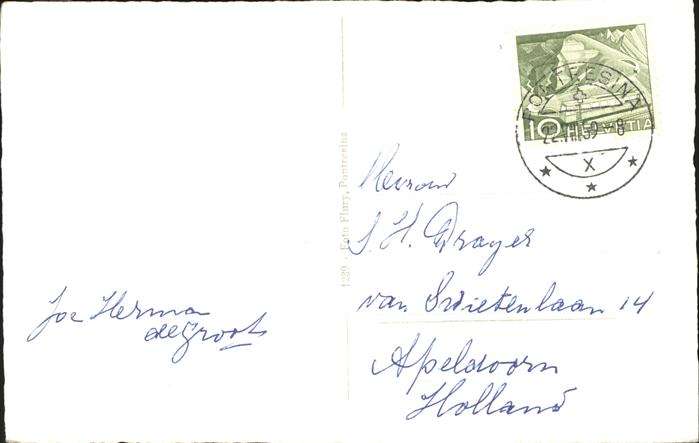 PONTRESINA
10 HELVETIA
22.VIII.59-8
X
1329 - Foto Flury, Pontresina
Mevrouw
S. H. Drayer
van Swietenlaan 14
Apeldoorn
Holland
Joe Herma
de Groot